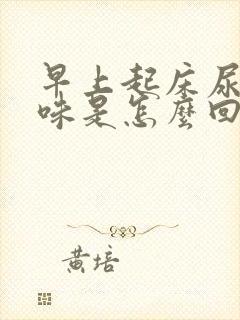 早上起床尿
味是怎麼回
黄培